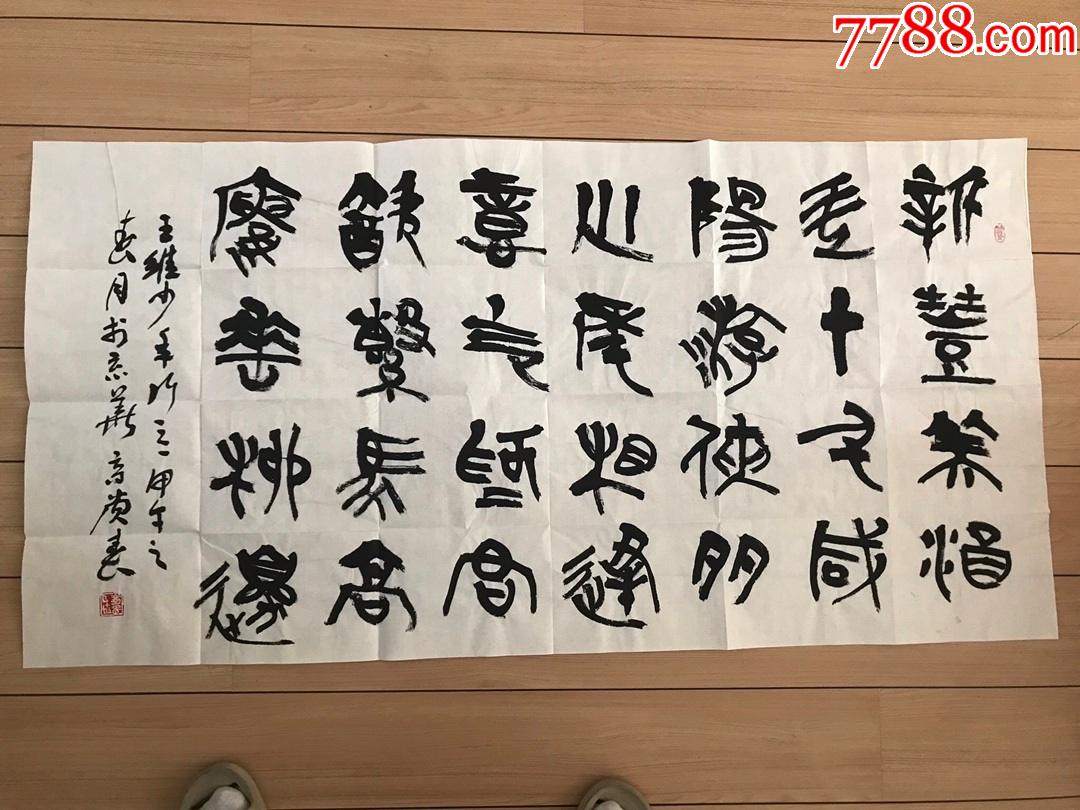 7788.com
新豐美酒
斗十千咸
陽游俠多
少年相逢
意气為君
飲繫馬高
樓垂柳邊
王維少年行之一甲午之
春月於京華高慶春